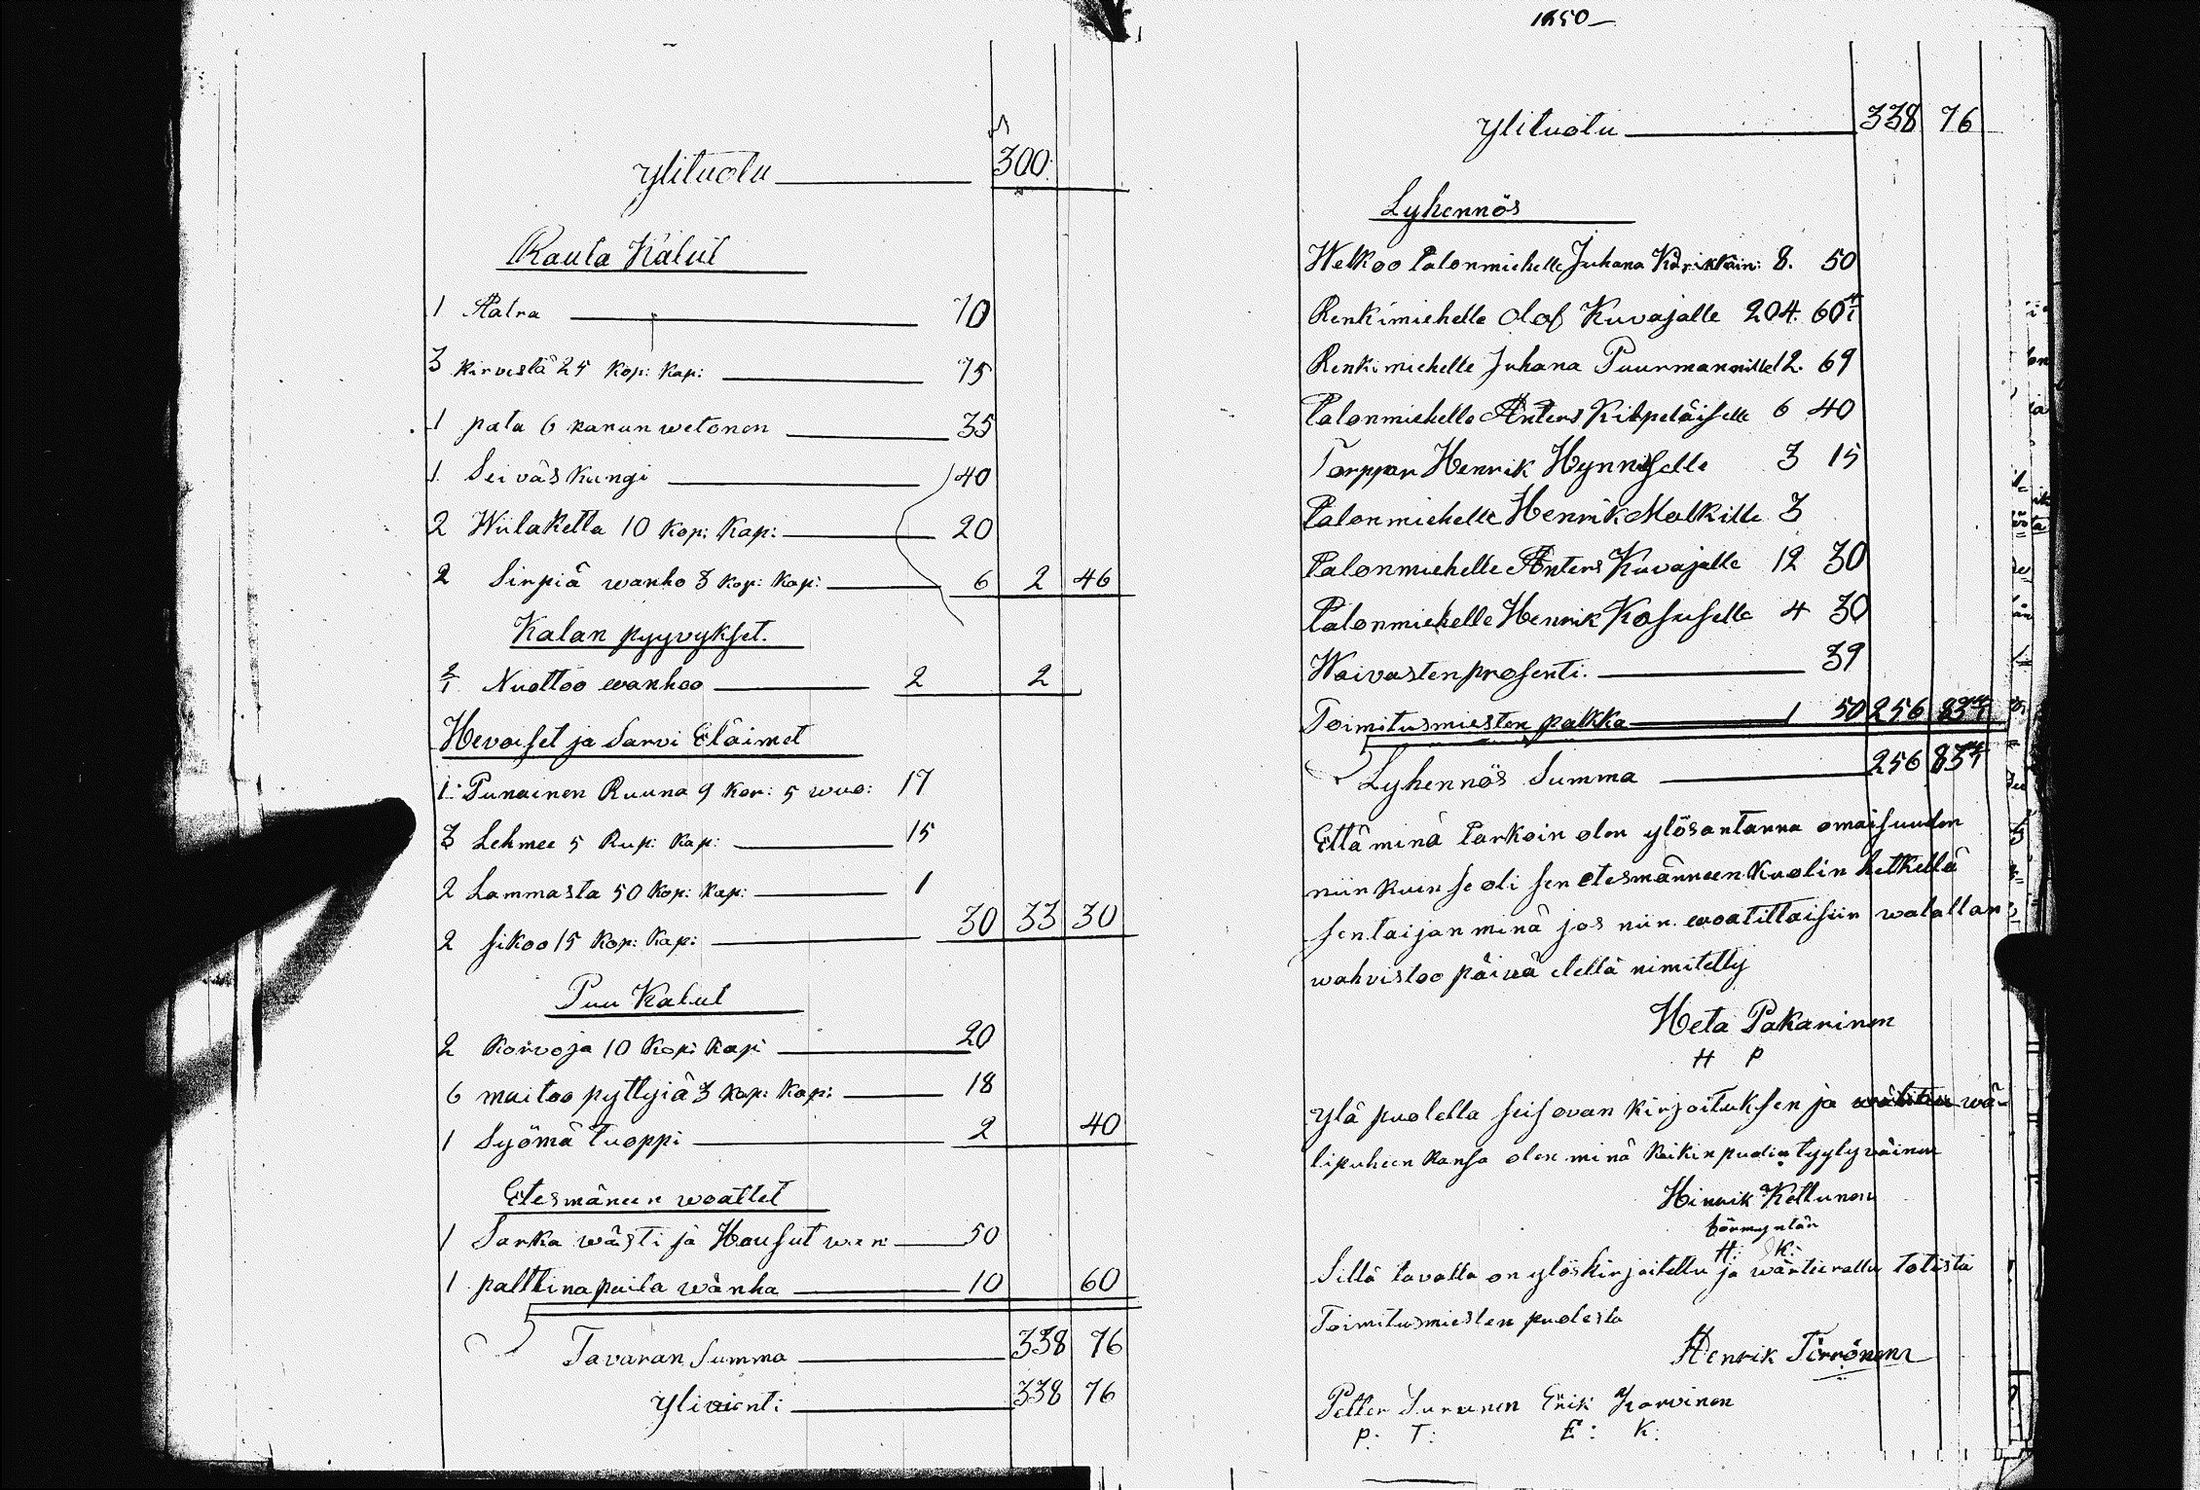 Ylituotu 300
Rauta Kalut
1 Aatra 70
3 kirvestä 25 kop: kap: 75
1 pata 6 kanun wetonen 35
1 Seiväs kangi 40
2 Wiilaketta 10 kop: kap: 20
2 Sirpiä wanho 3 kop: kap: 6 2 46
Kalan pyyvykset.
Nuottoo wanhoo 2 2
Hevoiset ja Sarvi Eläimet
1 Punainen Ruuna 9 kor: 5 wuo: 17
3 Lehmee 5 Rup: kap: 15
2 Lammasta 50 kop: kap: 1
2 sikoo 15 kop: kap: 30 33 30
Puu Kalut
2 korvoja 10 kop: kap: 20
6 maitoo pyttyiä 3 kop: kap: 18
1 Syömä tuoppi 2 40
Etesmäneen woattet
1 Sarka wästi ja Housut wan: 50
1 palttina paita wanha 10 60
Tavaran Summa 338 76
Ylivienti 338 76
1850
Ylituotu 338 76
Lyhennös
Welkoo talonmiehelle Juhana 8. 50
Renkimiehelle Olof Kuvajalle 204. 60
Renkimiehelle Juhana Puurmannille 12. 69
talonmiehelle Anters Kilpeläiselle 6 40
Torppar Henrik Hynniselle 3 15
talonmiehelle Henrik Malkille 3
talonmiehelle Anters Kuvajalle 12 30
talonmiehelle Henrik Kosuselle 4 30
Waivasten prosenti. 39
Toimitusmiesten palkka 1 50 256 83
Lyhennös Summa 256 83
Että minä tarkoin olen ylösantanna omaisuuden
niin kuin se oli sen etesmänneen kuolin hetkellä
sen taijan minä jos niin woatittaisiin walallan
wahvistoo päivä ellä nimitetty
Heta Pakarinen
H P
Ylä puolella seisovan kirjoituksen ja wä-
lipuheen kansa olen minä kaikin puolin tyytyväinen
Hinrik Kettunen
förmyntär
H: K:
Sillä tavalla on ylöskirjoitettu ja wärteerattu totista
Toimitusmiesten puolesta
Henrik Törrönen
Petter Turunen Erik Karvinen
P: T: E: K: